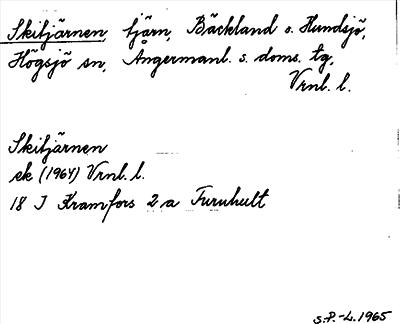 Skitjärnen, tjärn, Bäckland o. Hundsjö,
Högsjö sn, Ångermanl. s. doms. tg,
Vrnl. l.
Skitjärnen
ek (1964) Vrnl. l.
18 I Kramfors 2 a Furuhult
S.P.-L. 1965